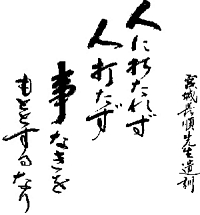 宮城長順先生遺訓
人に打たれず
人打たず
事なきを
もととするなり